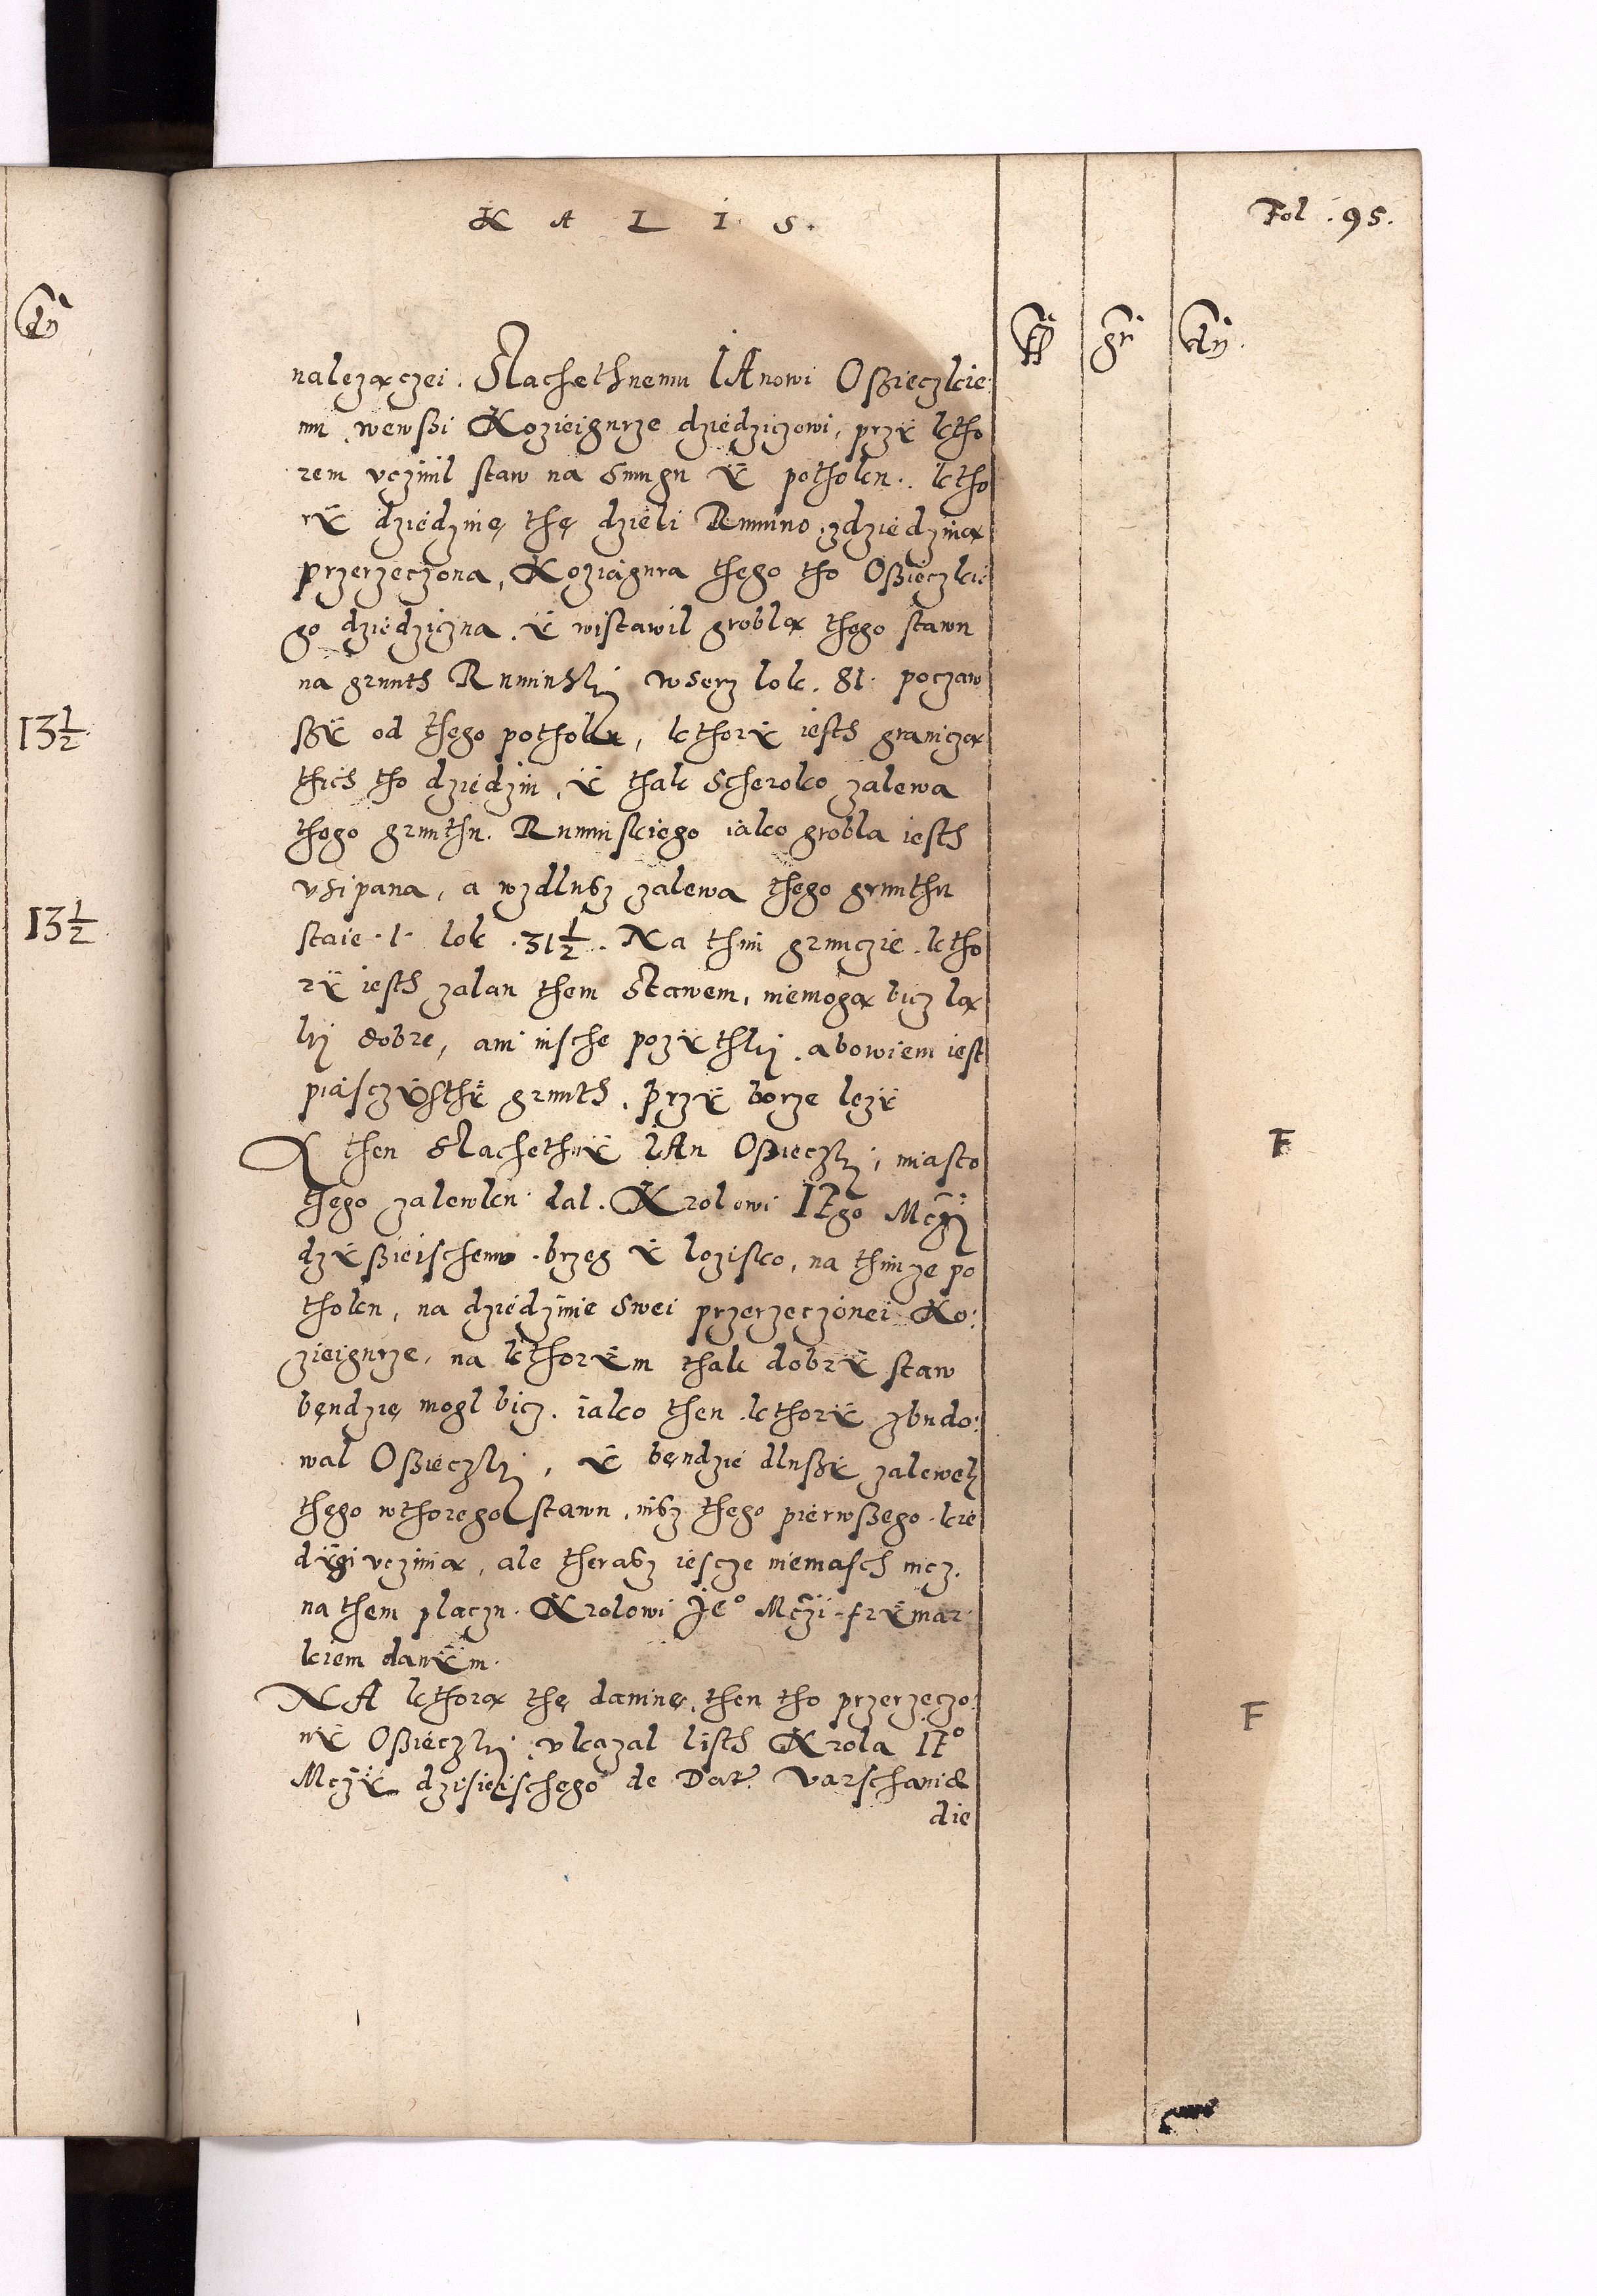 K A L I S.
Fol. 95.
fl gr dn.
dn
należączei. Slachethnemu IAnowi Oßieczkie
mu, wewßi Kozieigurze dziedziczowi, przÿ ktho
rem vczinil staw na Smugu ÿ pothoku. ktho
rÿ dziedzinę thę dzieli Rumino, zdziedziną
przerzeczona, Koziaigura thego tho Oßieczkie
go dziedziczna, ÿ wistawil groblą thego stawu
na grunth Ruminski wserz lok. 81. poczaw
ßÿ od thego pothoku, kthorÿ iesth graniczą
thich tho dziedzin, ÿ thak Scheroko zalewa
thego grunthu. Ruminskiego iako grobla iesth
vsipana, a wzdlusz zalewa thego grunthu
staie .1. lok .31 1/2. Na thim grunczie ktho
rÿ iesth zalan them Stawem, niemogą bicz łą
ki dobre, ani insche pozÿthki, abowiem iest
piasczÿsthÿ grunth, przÿ borze lezÿ
A then Slachethnÿ IAn Oßieczki, miasto
thego zalewku dal. Krolowi IEgo Mczi
dzÿßieischemu brzeg ÿ lozisko, na thimze po
thoku, na dziedzinie Swei przerzeczonei Ko:
zieigurze, na kthorÿm thak dobrÿ staw
będzie mogl bicz. iako then kthorÿ zbudo:
wal Oßieczki, ÿ bęndzie dlußÿ zalewek
thego wthorego stawu, nisz thego pierwßego kie
dÿgi vczinią, ale therasz iescze niemasch nicz.
na them placzu. Krolowi Je° Mczi frÿmar
kiem danÿm.
NA kthorą thę daninę, then tho przerzeczo:
nÿ Oßieczki, vkazal listh Krola IE°
Mczÿ dzisieischego de Dat. Varschaniæ
die
13 1/2
13 1/2
F
F